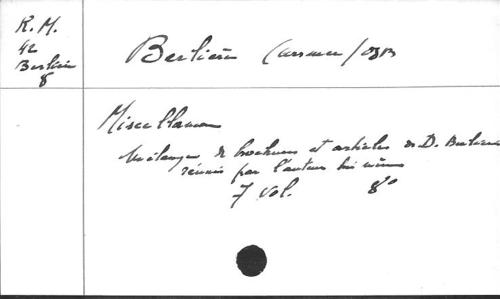 R. M.
42
Berlière
8
Berlière (Ursmer) OSB
Miscellanea
Mélanges de brochures et articles de D. Berlière
réunis par l'auteur lui même
7 vol. 8°